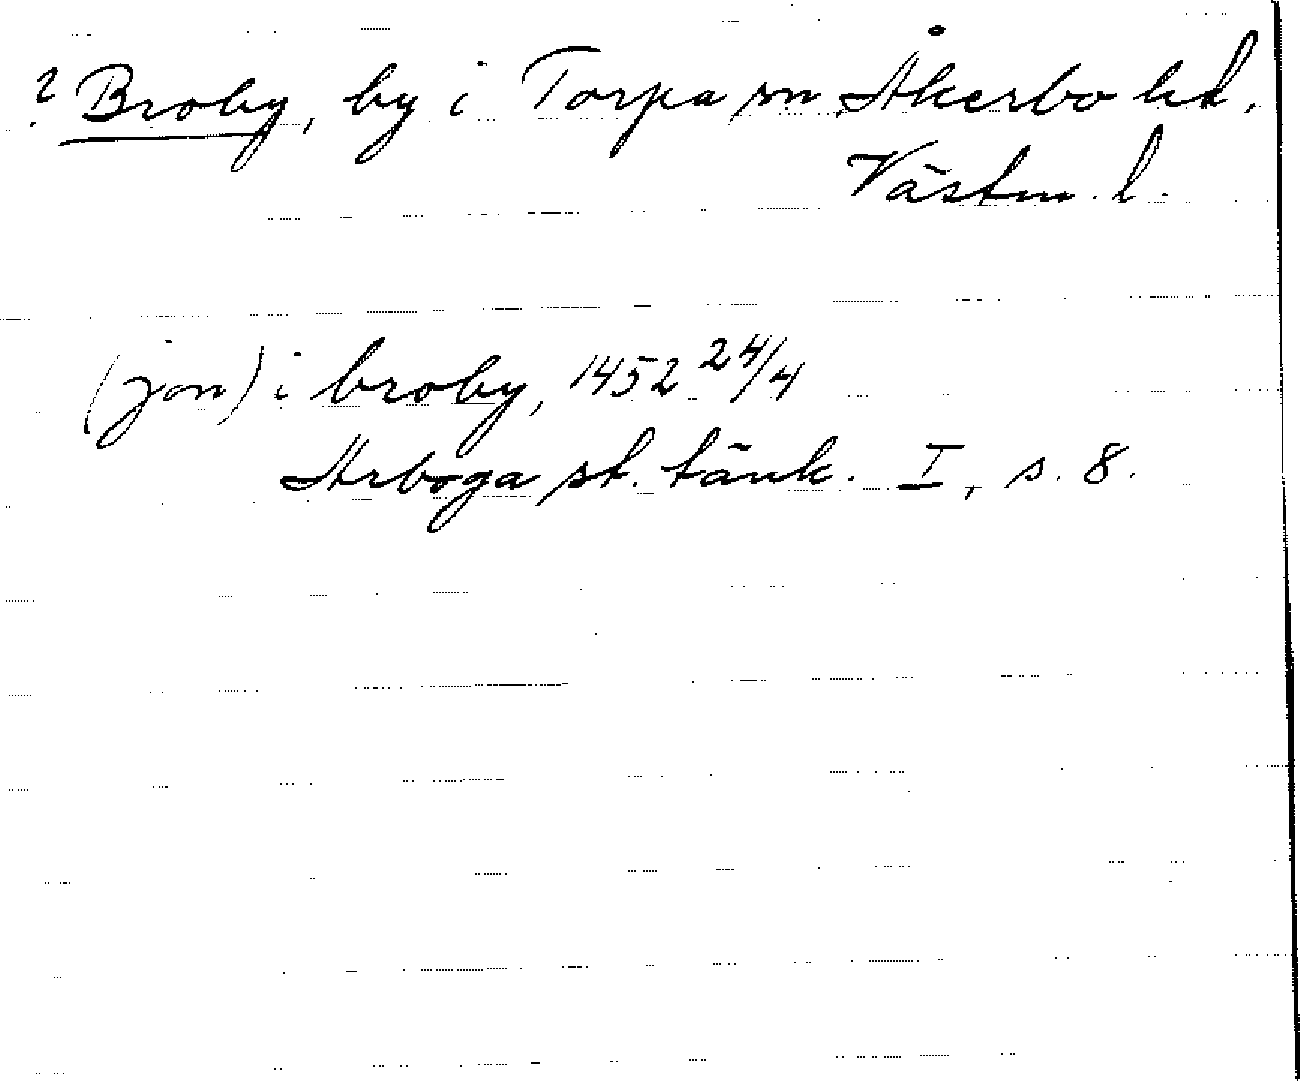 ? Broby, by i Torpa sn Åkerbo hd.
Västm. l.
(jon) i broby, 1452 24/4
Arboga st. tänk. I, s. 8.